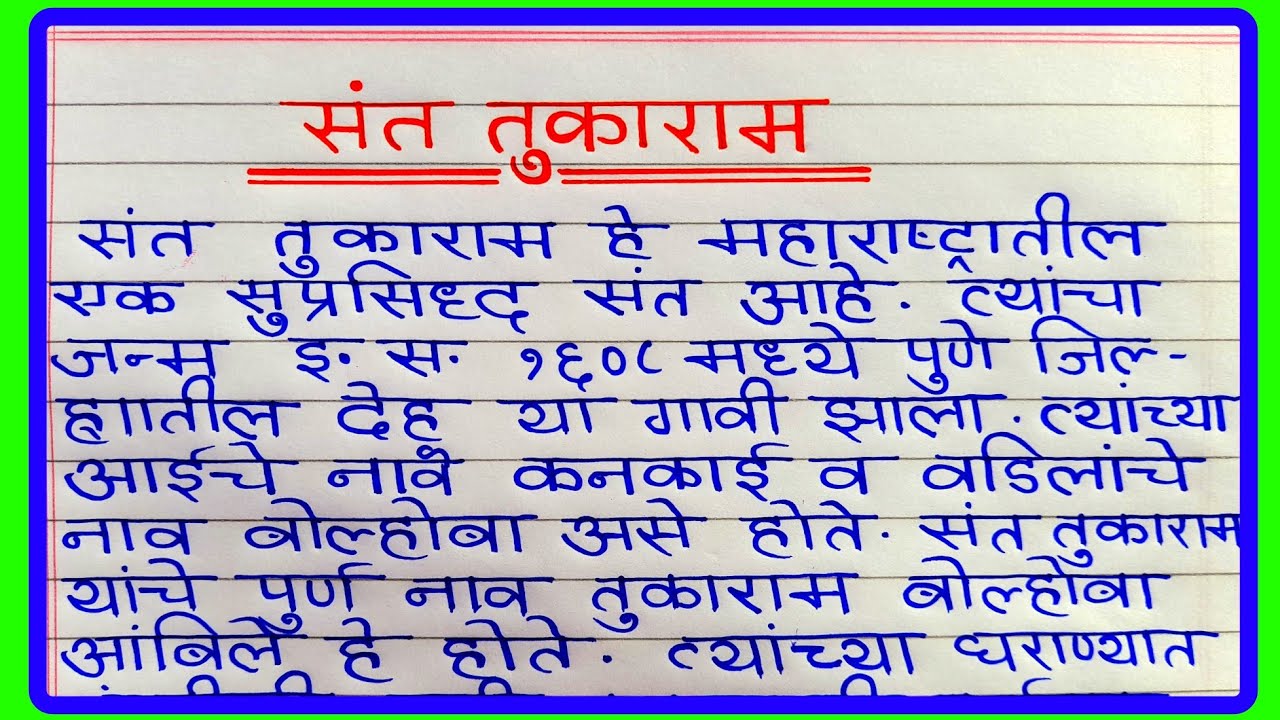 संत तुकाराम
संत तुकाराम हे महाराष्ट्रातील
एक सुप्रसिध्द संत आहे. त्यांचा
जन्म इ. स. १६०८ मध्ये पुणे जिल-
ह्यातील देहू या गावी झाला. त्यांच्या
आईचे नाव कनकाई व वडिलांचे
नाव बोल्होबा असे होते. संत तुकाराम
यांचे पुर्ण नाव तुकाराम बोल्होबा
आंबिले हे होते. त्यांच्या घराण्यात